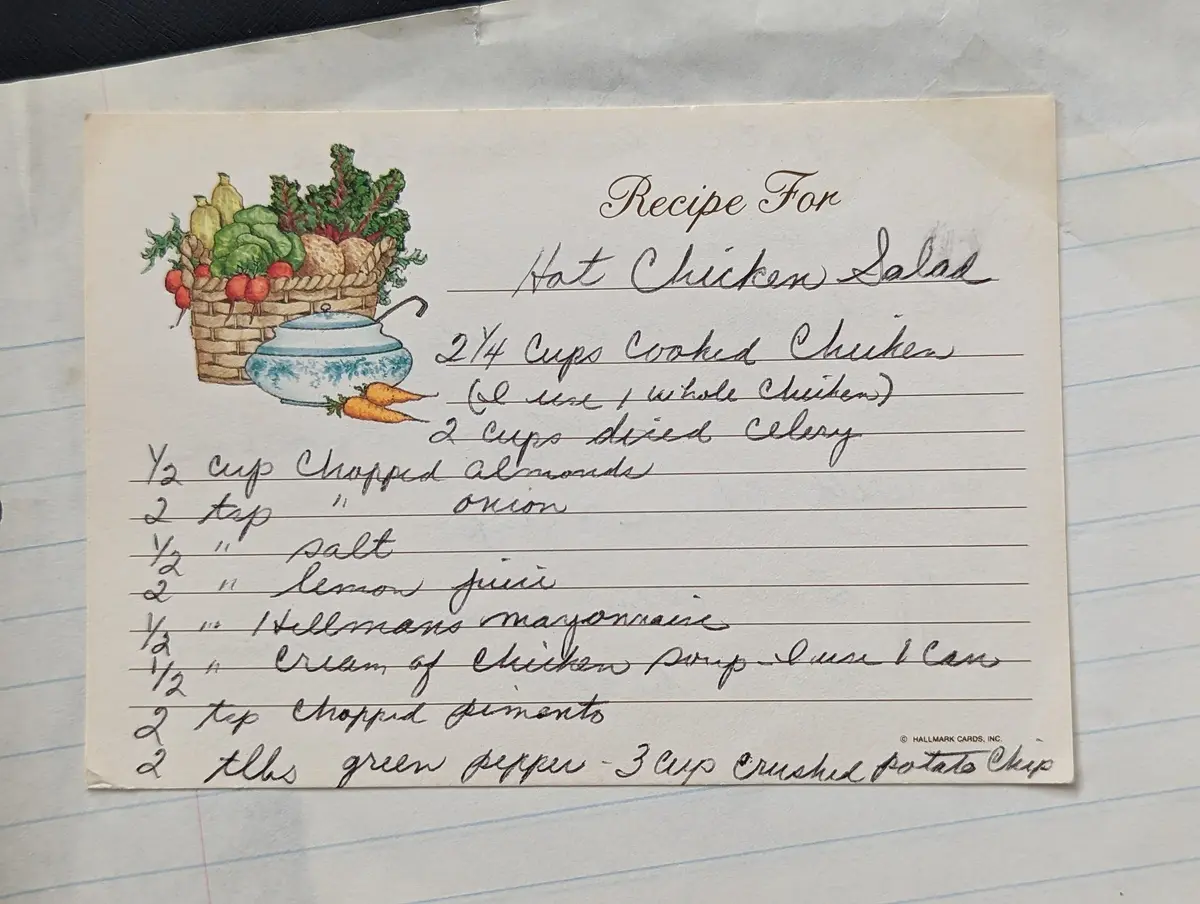 Recipe For
Hot Chicken Salad
2 1/4 cups cooked Chicken
(I use 1 whole Chicken)
2 cups diced celery
1/2 cup chopped almonds
2 tsp " onion
1/2 " salt
2 " lemon juice
1/2 " Hellmans mayonnaise
1/2 " cream of chicken soup - I use 1 can
2 tsp chopped pimento
© HALLMARK CARDS, INC.
2 tlbs green pepper - 3 cup crushed potato chip